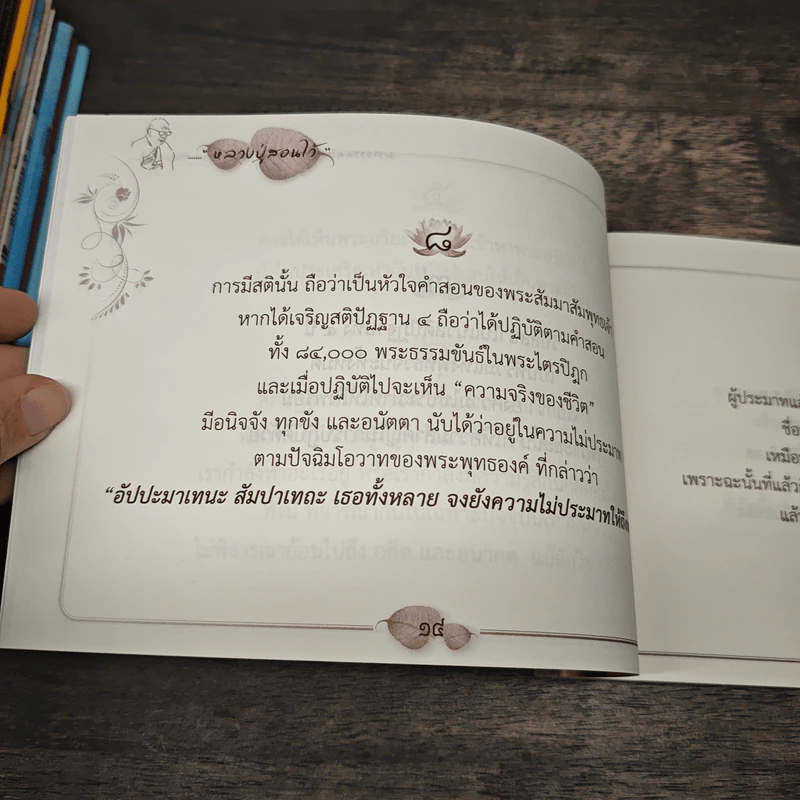 ....."หลวงปู่สอนไว้"
๘
การมีสตินั้น ถือว่าเป็นหัวใจคำสอนของพระสัมมาสัมพุทธเจ้า
หากได้เจริญสติปัฏฐาน ๔ ถือว่าได้ปฏิบัติตามคำสอน
ทั้ง ๘๔,๐๐๐ พระธรรมขันธ์ในพระไตรปิฎก
และเมื่อปฏิบัติไปจะเห็น “ความจริงของชีวิต”
มีอนิจจัง ทุกขัง และอนัตตา นับได้ว่าอยู่ในความไม่ประมาท
ตามปัจฉิมโอวาทของพระพุทธองค์ ที่กล่าวว่า
“อัปปะมาเทนะ สัมปาเทถะ เธอทั้งหลาย จงยังความไม่ประมาทให้ถึง
๑๔
ผู้ประมาทแล
ชื่อ
เหมือ
เพราะฉะนั้นที่แล้ว
แล้ว